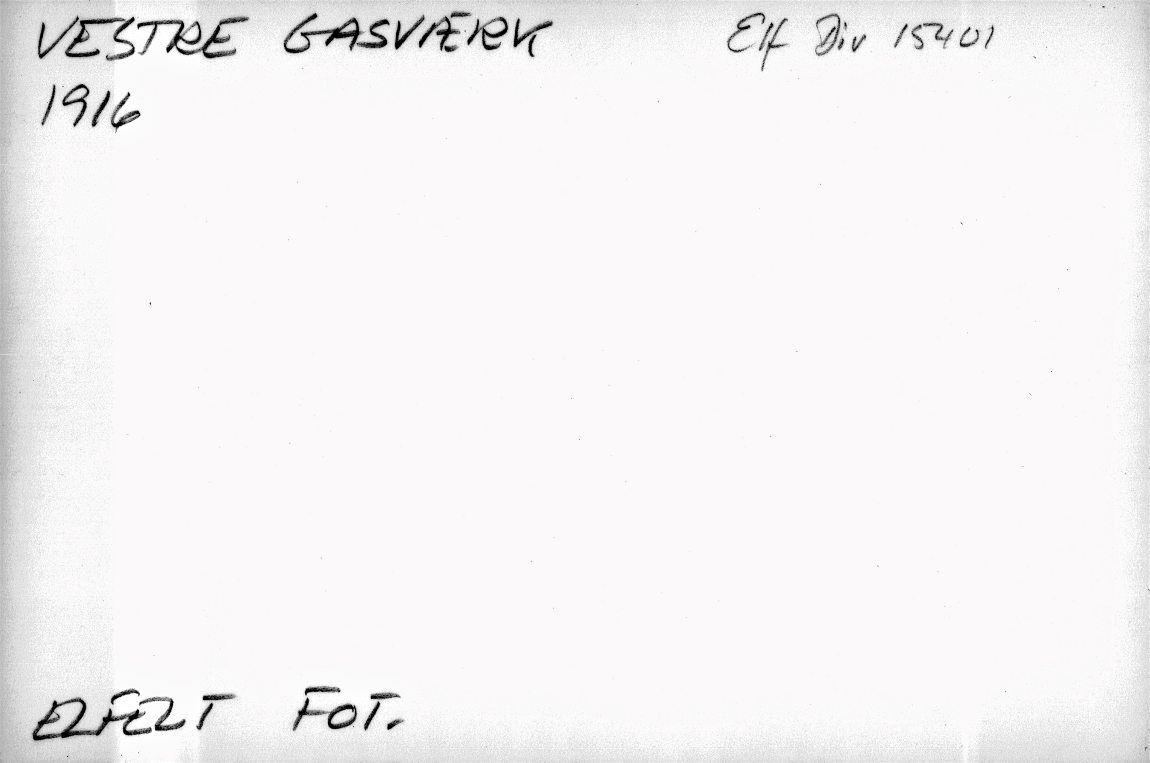 VESTRE GASVÆRK Elf Div 15401
1916
ELFELT FOT.